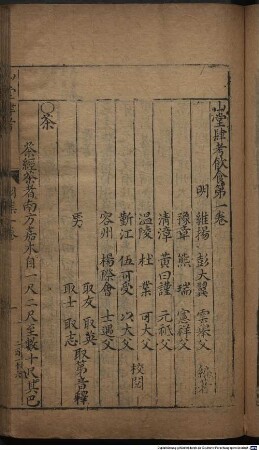 山堂肆考飲食第一卷
明 維揚 彭大翼 雲舉父 編著
豫章 熊 瑞 憲祥父
清漳 黃曰謹 元祇父
溫陵 杜 業 可大父 校閱
蘄江 伍可愛 以大父
容州 楊際會 士遇父
男
取友 取英
取士 取志
取第 音釋
○茶
茶經茶者南方嘉木自一尺二尺至數十尺其巴